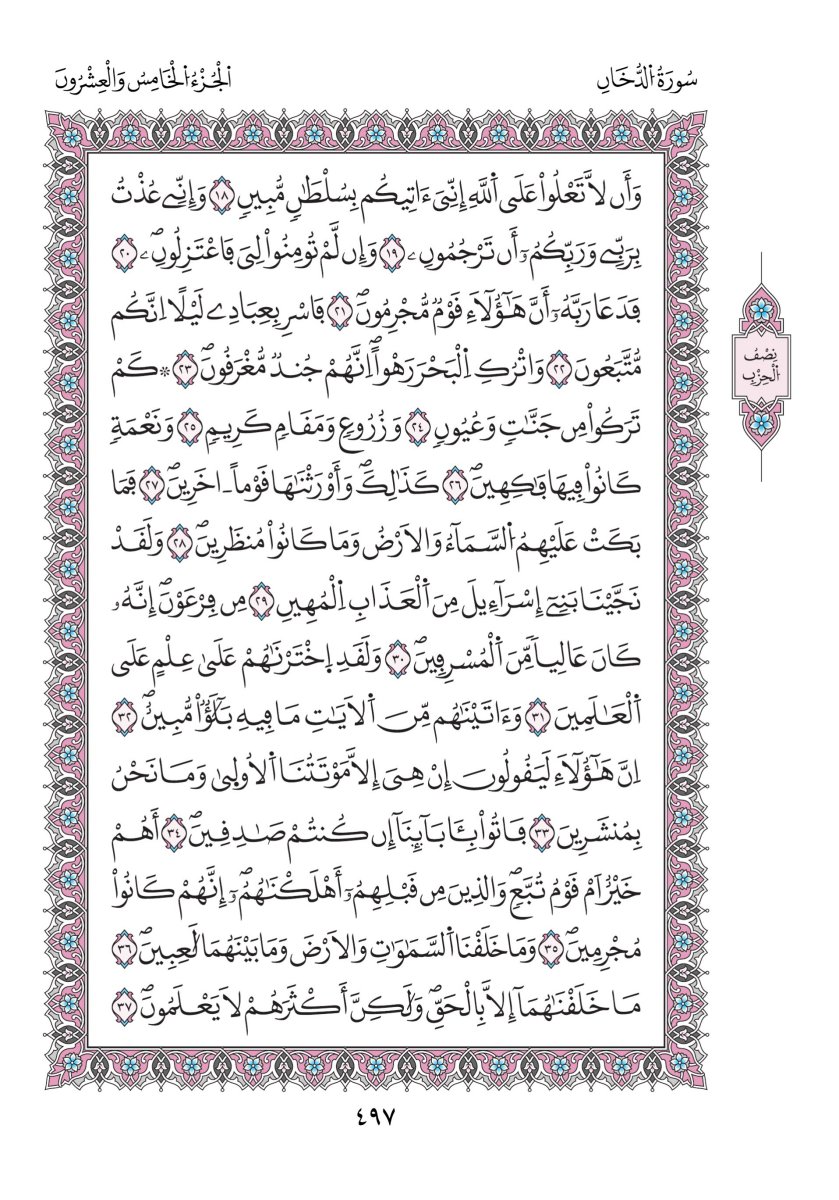 سُورَةُ اُ۬لدُّخَانِ
اَ۬لْجُزْءُ اُ۬لْخَامِسُ وَالْعِشْرُونَ
وَأَن لَّا تَعْلُواْ عَلَى اَ۬للَّهِ إِنِّيَ ءَاتِيكُم بِسُلْطَٰنٖ مُّبِينٖۖ ١٨ وَإِنِّے عُذْتُ
بِرَبِّے وَرَبِّكُمُۥٓ أَن تَرْجُمُونِۦ ١٩ وَإِن لَّمْ تُومِنُواْ لِيَ فَاعْتَزِلُونِۦۖ ٢٠
فَدَعَا رَبَّهُۥٓ أَنَّ هَٰٓؤُلَآءِ قَوْمٞ مُّجْرِمُونَۖ ٢١ فَاسْرِ بِعِبَادِے لَيْلًا اِنَّكُم
مُّتَّبَعُونَ ٢٢ وَاتْرُكِ اِ۬لْبَحْرَ رَهْواًۖ اِنَّهُمْ جُندٞ مُّغْرَقُونَۖ ٢٣ ۞كَمْ
تَرَكُواْ مِن جَنَّٰتٖ وَعُيُونٖ ٢٤ وَزُرُوعٖ وَمَقَامٖ كَرِيمٖ ٢٥ وَنَعْمَةٖ
كَانُواْ فِيهَا فَٰكِهِينَۖ ٢٦ كَذَٰلِكَۖ وَأَوْرَثْنَٰهَا قَوْماً ـ اخَرِينَۖ ٢٧ فَمَا
بَكَتْ عَلَيْهِمُ اُ۬لسَّمَآءُ وَالَارْضُ وَمَا كَانُواْ مُنظَرِينَۖ ٢٨ وَلَقَدْ
نَجَّيْنَا بَنِےٓ إِسْرَآءِيلَ مِنَ اَ۬لْعَذَابِ اِ۬لْمُهِينِ ٢٩ مِن فِرْعَوْنَۖ إِنَّهُۥ
كَانَ عَالِياٗ مِّنَ اَ۬لْمُسْرِفِينَۖ ٣٠ وَلَقَدِ اِ۪خْتَرْنَٰهُمْ عَلَىٰ عِلْمٍ عَلَى
اَ۬لْعَٰلَمِينَ ٣١ وَءَاتَيْنَٰهُم مِّنَ اَ۬لَايَٰتِ مَا فِيهِ بَلَٰٓؤٞاْ مُّبِينٌۖ ٣٢
اِنَّ هَٰٓؤُلَآءِ لَيَقُولُونَ إِنْ هِيَ إِلَّا مَوْتَتُنَا اَ۬لُاول۪ىٰ وَمَا نَحْنُ
بِمُنشَرِينَ ٣٣ فَاتُواْ بِـَٔابَآئِنَآ إِن كُنتُمْ صَٰدِقِينَۖ ٣٤ أَهُمْ
خَيْرٌ اَمْ قَوْمُ تُبَّعٖ وَالذِينَ مِن قَبْلِهِمُۥٓ أَهْلَكْنَٰهُمُۥٓۖ إِنَّهُمْ كَانُواْ
مُجْرِمِينَۖ ٣٥ وَمَا خَلَقْنَا اَ۬لسَّمَٰوَٰتِ وَالَارْضَ وَمَا بَيْنَهُمَا لَٰعِبِينَۖ ٣٦
مَا خَلَقْنَٰهُمَآ إِلَّا بِالْحَقِّۖ وَلَٰكِنَّ أَكْثَرَهُمْ لَا يَعْلَمُونَۖ ٣٧
نِصْفُ
اُ۬لْحِزْبِ
٤٩٧